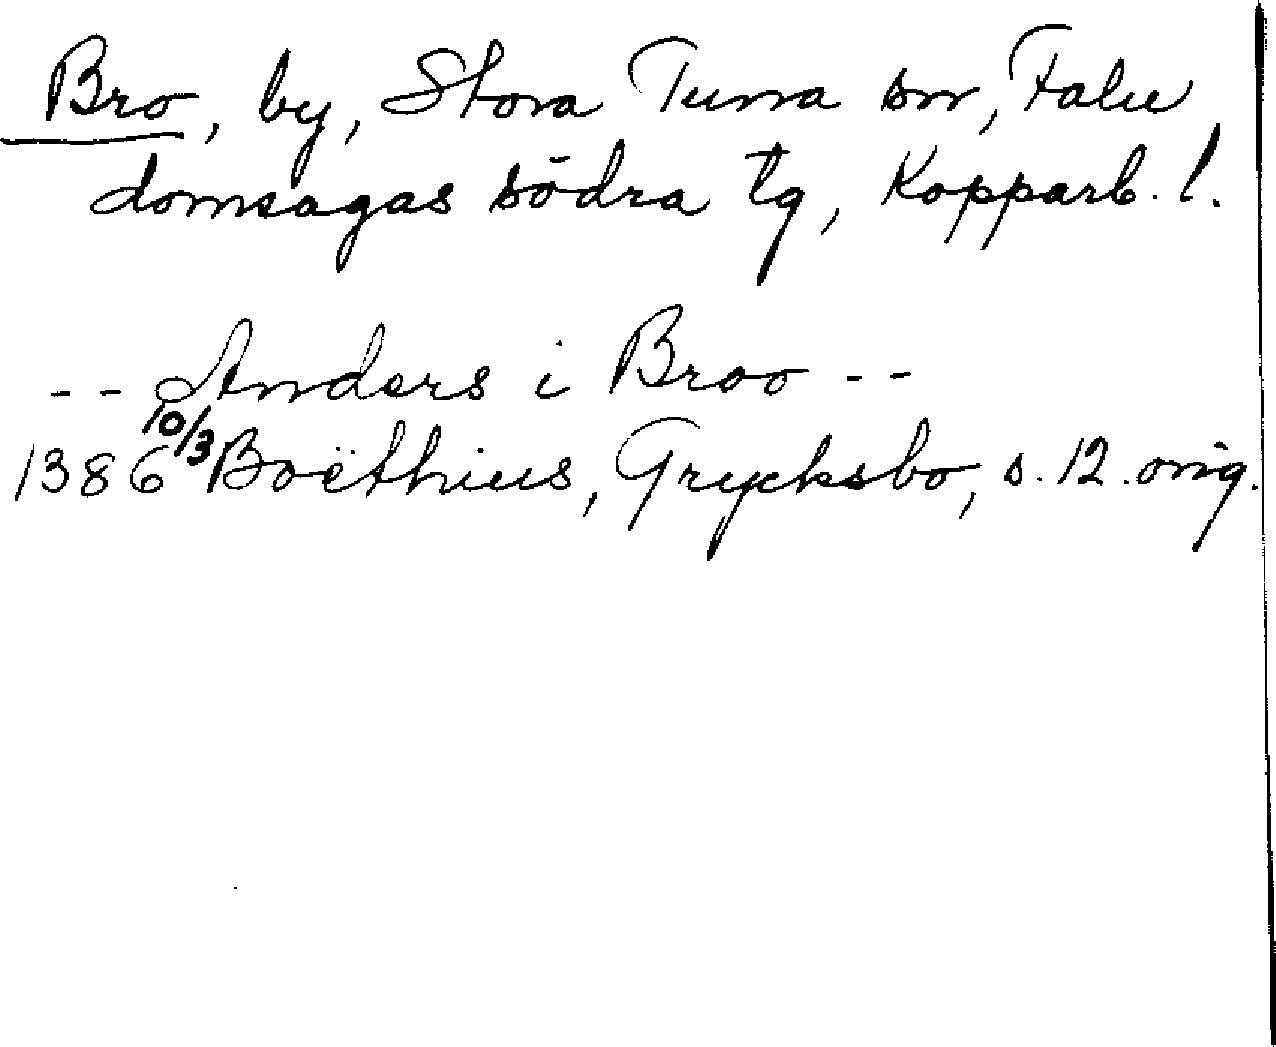 Bro, by, Stora Tuna sn, Falu
domsagas södra tg, Kopparb. l.
-- Anders i Broo --
1386 10/3 Boëthius, Grycksbo, s. 12. orig.